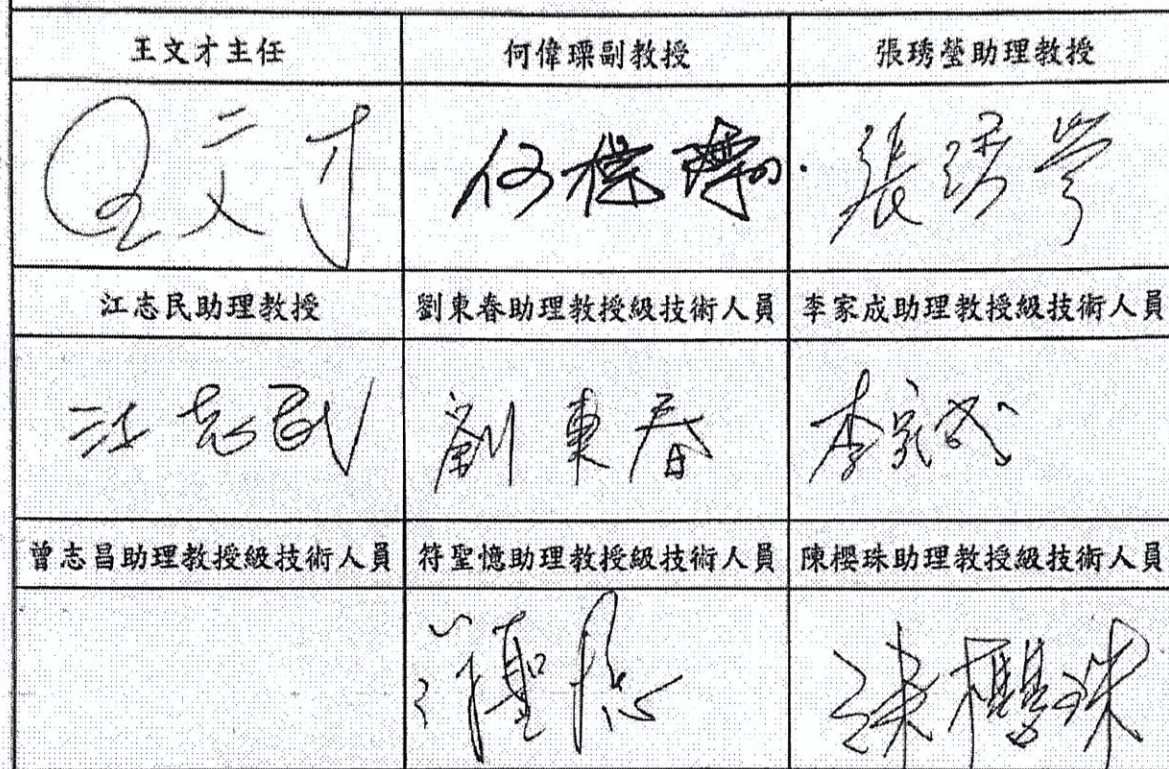 王文才主任 何偉瑮副教授 張琇瑩助理教授
王文才 何偉瑮 張琇瑩
江志民助理教授 劉東春助理教授級技術人員 李家成助理教授級技術人員
江志民 劉東春 李家成
曾志昌助理教授級技術人員 符聖憶助理教授級技術人員 陳櫻珠助理教授級技術人員
符聖憶 陳櫻珠